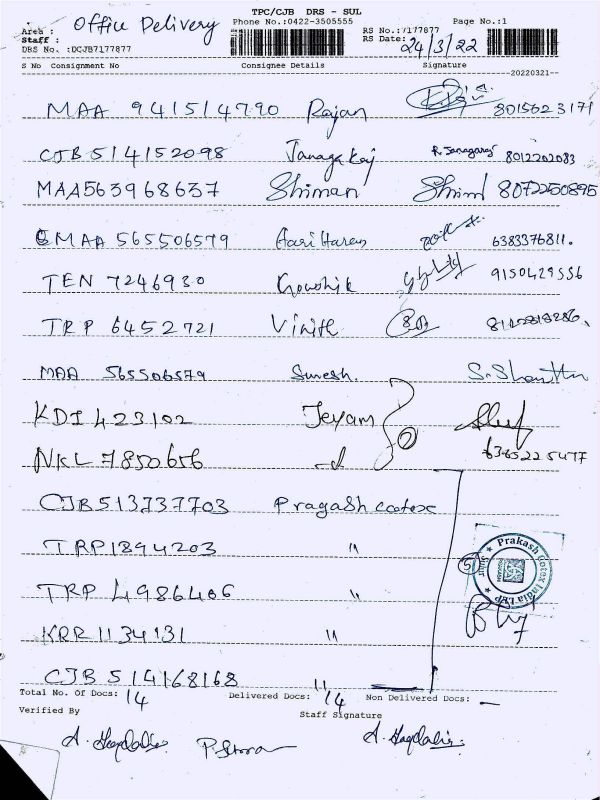 TPC/CJB DRS - SUL
Area : Office Delivery Phone No.:0422-3505555 RS No.:7177877 Page No.:1
Staff : RS Date: 24/3/22
DRS No. :DCJB7177877
S No Consignment No Consignee Details Signature
--20220321--
MAA 941514790 Rajan 8015623171
CJB 514152098 Janagaraj R. Janagaraj 8012202083
MAA563968637 Shiman Shim 8072250895
MAA 565506579 Aari Haran 6383376811.
TEN 7246930 Gowshik 9150429556
TRP 6452721 Vinith
MAA 565506579 Suresh.
KDI 423102 Jeyam
NKL 7850656 6365225477
CJB513737703 Pragash cotex
TRP1894203 "
TRP 4986406 "
KRR 1134131 "
CJB 514168168 "
Prakash Cotex India LLP
5
Total No. Of Docs: 14 Delivered Docs: 14 Non Delivered Docs: —
Verified By Staff Signature